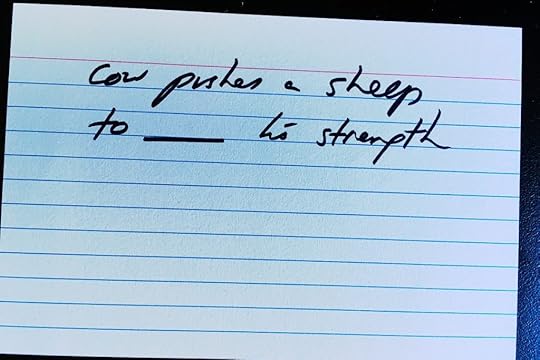 Cow pushes a sheep
to ____ his strength